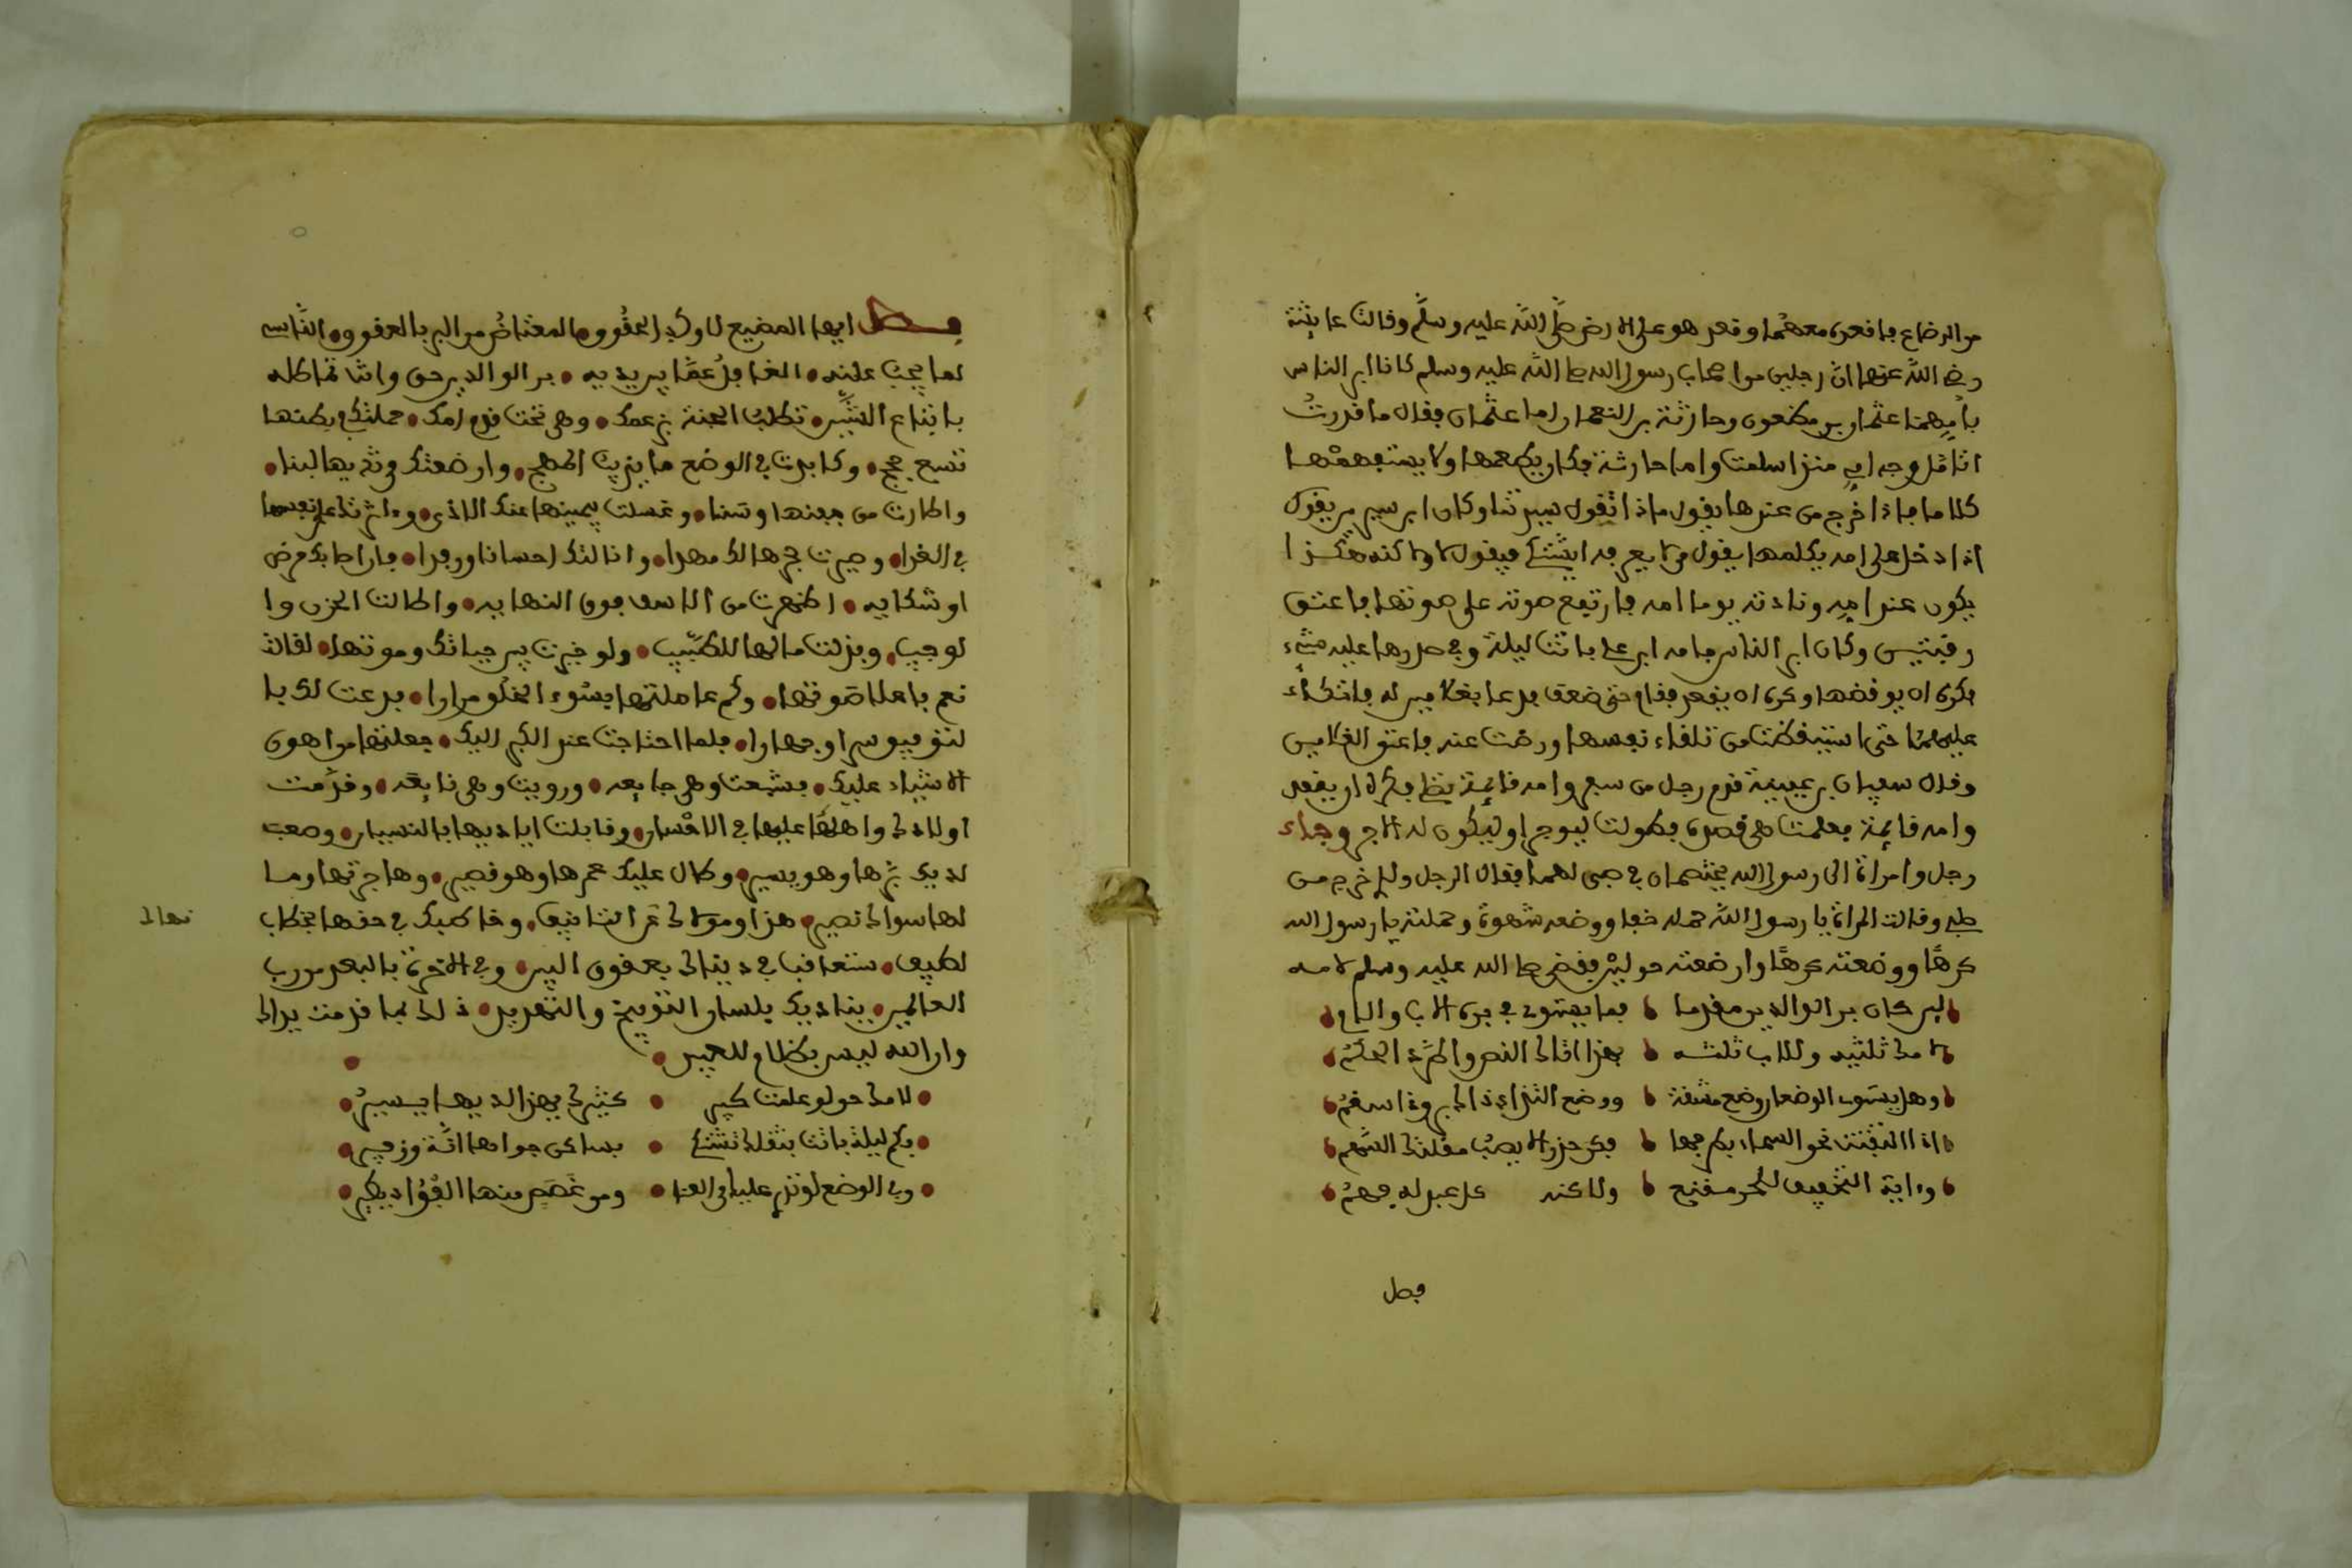 من الرضاع فاقعده معهما وقعد هو على الارض صلى الله عليه وسلم وقالت عايشة
رضي الله عنها ان رجلين من اصحاب رسول الله صلى الله عليه وسلم كانا ابر الناس
بامهما عثمان بن مظعون وحارثة بن النعمان اما عثمان فقال ما قدرت
اتامل وجه امي منذ اسلمت واما حارثة فكان يطعمها ولا يستفهمها
كلاما فاذا خرج من عندها يقول ماذا تقول سيدتنا وكان ابن سيرين يقول
اذا دخل على امه يكلمها يقول من لا يعرفه ايشتكي فيقول لا ولاكنه هكذا
يكون عند امه ونادته يوما امه فارتفع صوته على صوتها فاعتق
رقبتين وكان ابر الناس بامه ابن علي باتت ليلة وفي صدرها عليه شيء
فكره ان يوقظها وكره ان يقعد فقام حتى ضعف فدعا بغلامين له فاتكاء
عليهما حتى استيقظت من تلقاء نفسها ورضت عنه فاعتق الغلامين
وقال سفيان بن عيينة قدم رجل من سفر وامه قائمة تصلي فكره ان يقعد
وامه قائمة فعلمت هي قصده فطولت ليوجر اوليكون له الاجر وجاء
رجل وامراة الى رسول الله يختصمان في صبي لهما فقال الرجل ولدي خرج من
صلبي وقالت المراة يا رسول الله حمله خفا ووضعه شهوة وحملته يا رسول الله
كرها ووضعته كرها وارضعته حولين فقضى صلى الله عليه وسلم لامه
لين كان بر الوالدين مقدما فما يستوي في بره الاب والام
لامك ثلثيه وللاب ثلثه بهذا اتاك النص والمرء الحكم
وهل يستوي الوضعان وضع مشقة ووضع التذاذ ذاك برء وذا سقم
اذا التفتت نحو السماء بطرفها فكن حذرا لا يصب مقلتك السهم
وءاية التخفيف للحر مقنع ولاكنه على عبد له فهم
فصل
فصل ايها المضيع لاوكد الحقوق المعتاض من البر بالعقوق الناسي
لما يجب عليه الغافل عما بين يديه بر الوالدين حق وانت تماطله
باتباع الشين تطلب الجنة بزعمك وهي تحت قدم امك حملتك في بطنها
تسع حجج وكابدت في الوضع ما يذيب المهج وارضعتك من ثديها لبنا
واطارت من جفنها وسنا وغسلت بيمينها عنك الاذى وءاثرتك على نفسها
في الغذا وصيرت حجرها لك مهدا وانالتك احسانا ورفدا فان اصابك مرض
او شكايه اظهرت من الاسف فوق النهايه واطالت الحزن وا
لوجيب وبذلت مالها للطبيب ولو خيرت بين حياتك وموتها لقالت
نعم باعلا صوتها وكم عاملتها بسوء الخلق مرارا فدعت لك با
لتوفيق سرا وجهارا فلما احتاجت عند الكبر اليك جعلتها من اهون
الاشياء عليك فشبعت وهي جايعه ورويت وهي نايعه وقدمت
اولادك واهلك عليها في الاحسان وقابلت اياديها بالنسيان وصعب
لديك برها وهو يسير وطال عليك عمرها وهو قصير وهاجرتها وما
لها سواك نصير هذا ومولاك عن التافيف وخاطبك في حقها بخطاب
نهاك
لطيف ستعاقب في دنياك بعقوق البنين وفي الاخرة بالبعد من رب
العالمين يناديك بلسان التوبيخ والتهديد ذلك بما قدمت يداك
وان الله ليس بظلام للعبيد
لامك حق لو علمت كبير كثيرك بهذا لديها يسير
فكم ليلة باتت بثقلك تشتكي بها كي جواها انة وزفير
وفي الوضع لو تدري عليها فوالعنا ومن غصص منها الفؤاد يطير